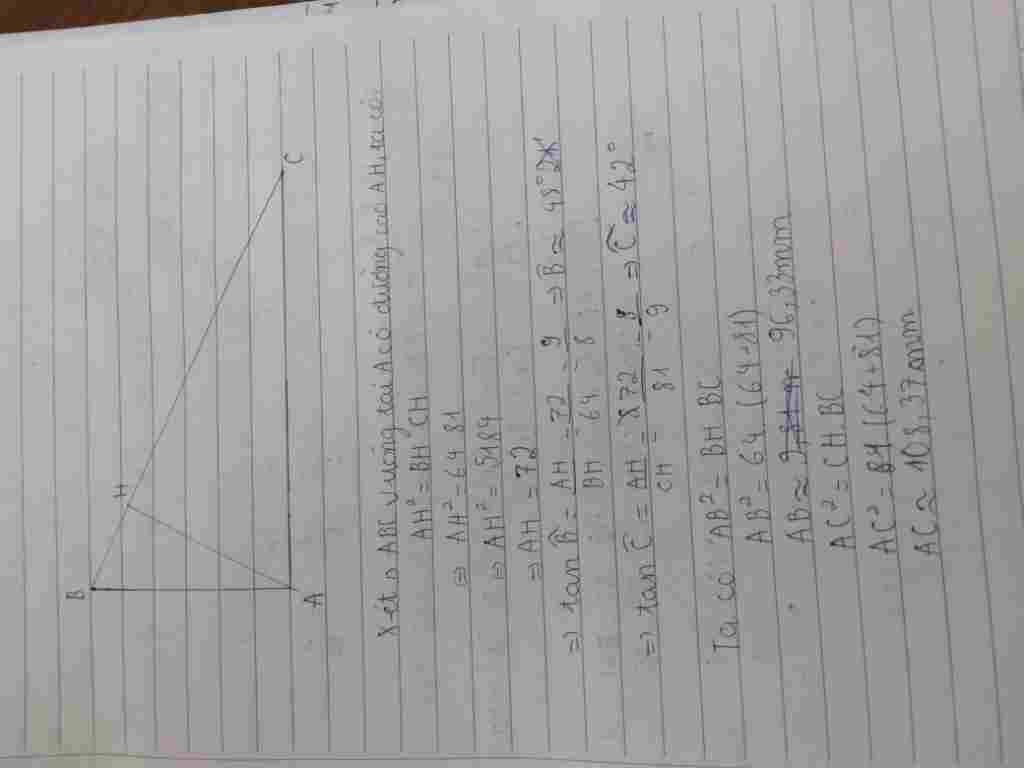 B
H
A
C
Xét △ ABC vuông tại A có đường cao AH, ta có:
AH² = BH CH
⇒ AH² = 64 81
⇒ AH² = 5184
⇒ AH = 72
⇒ tan B̂ = AH/BH = 72/64 = 9/8 ⇒ B̂ ≈ 48°
⇒ tan Ĉ = AH/CH = 72/81 = 8/9 ⇒ Ĉ ≈ 42°
Ta có AB² = BH. BC
AB² = 64. (64+81)
AB ≈ 96,33mm
AC² = CH. BC
AC² = 81 (64+81)
AC ≈ 108,37mm